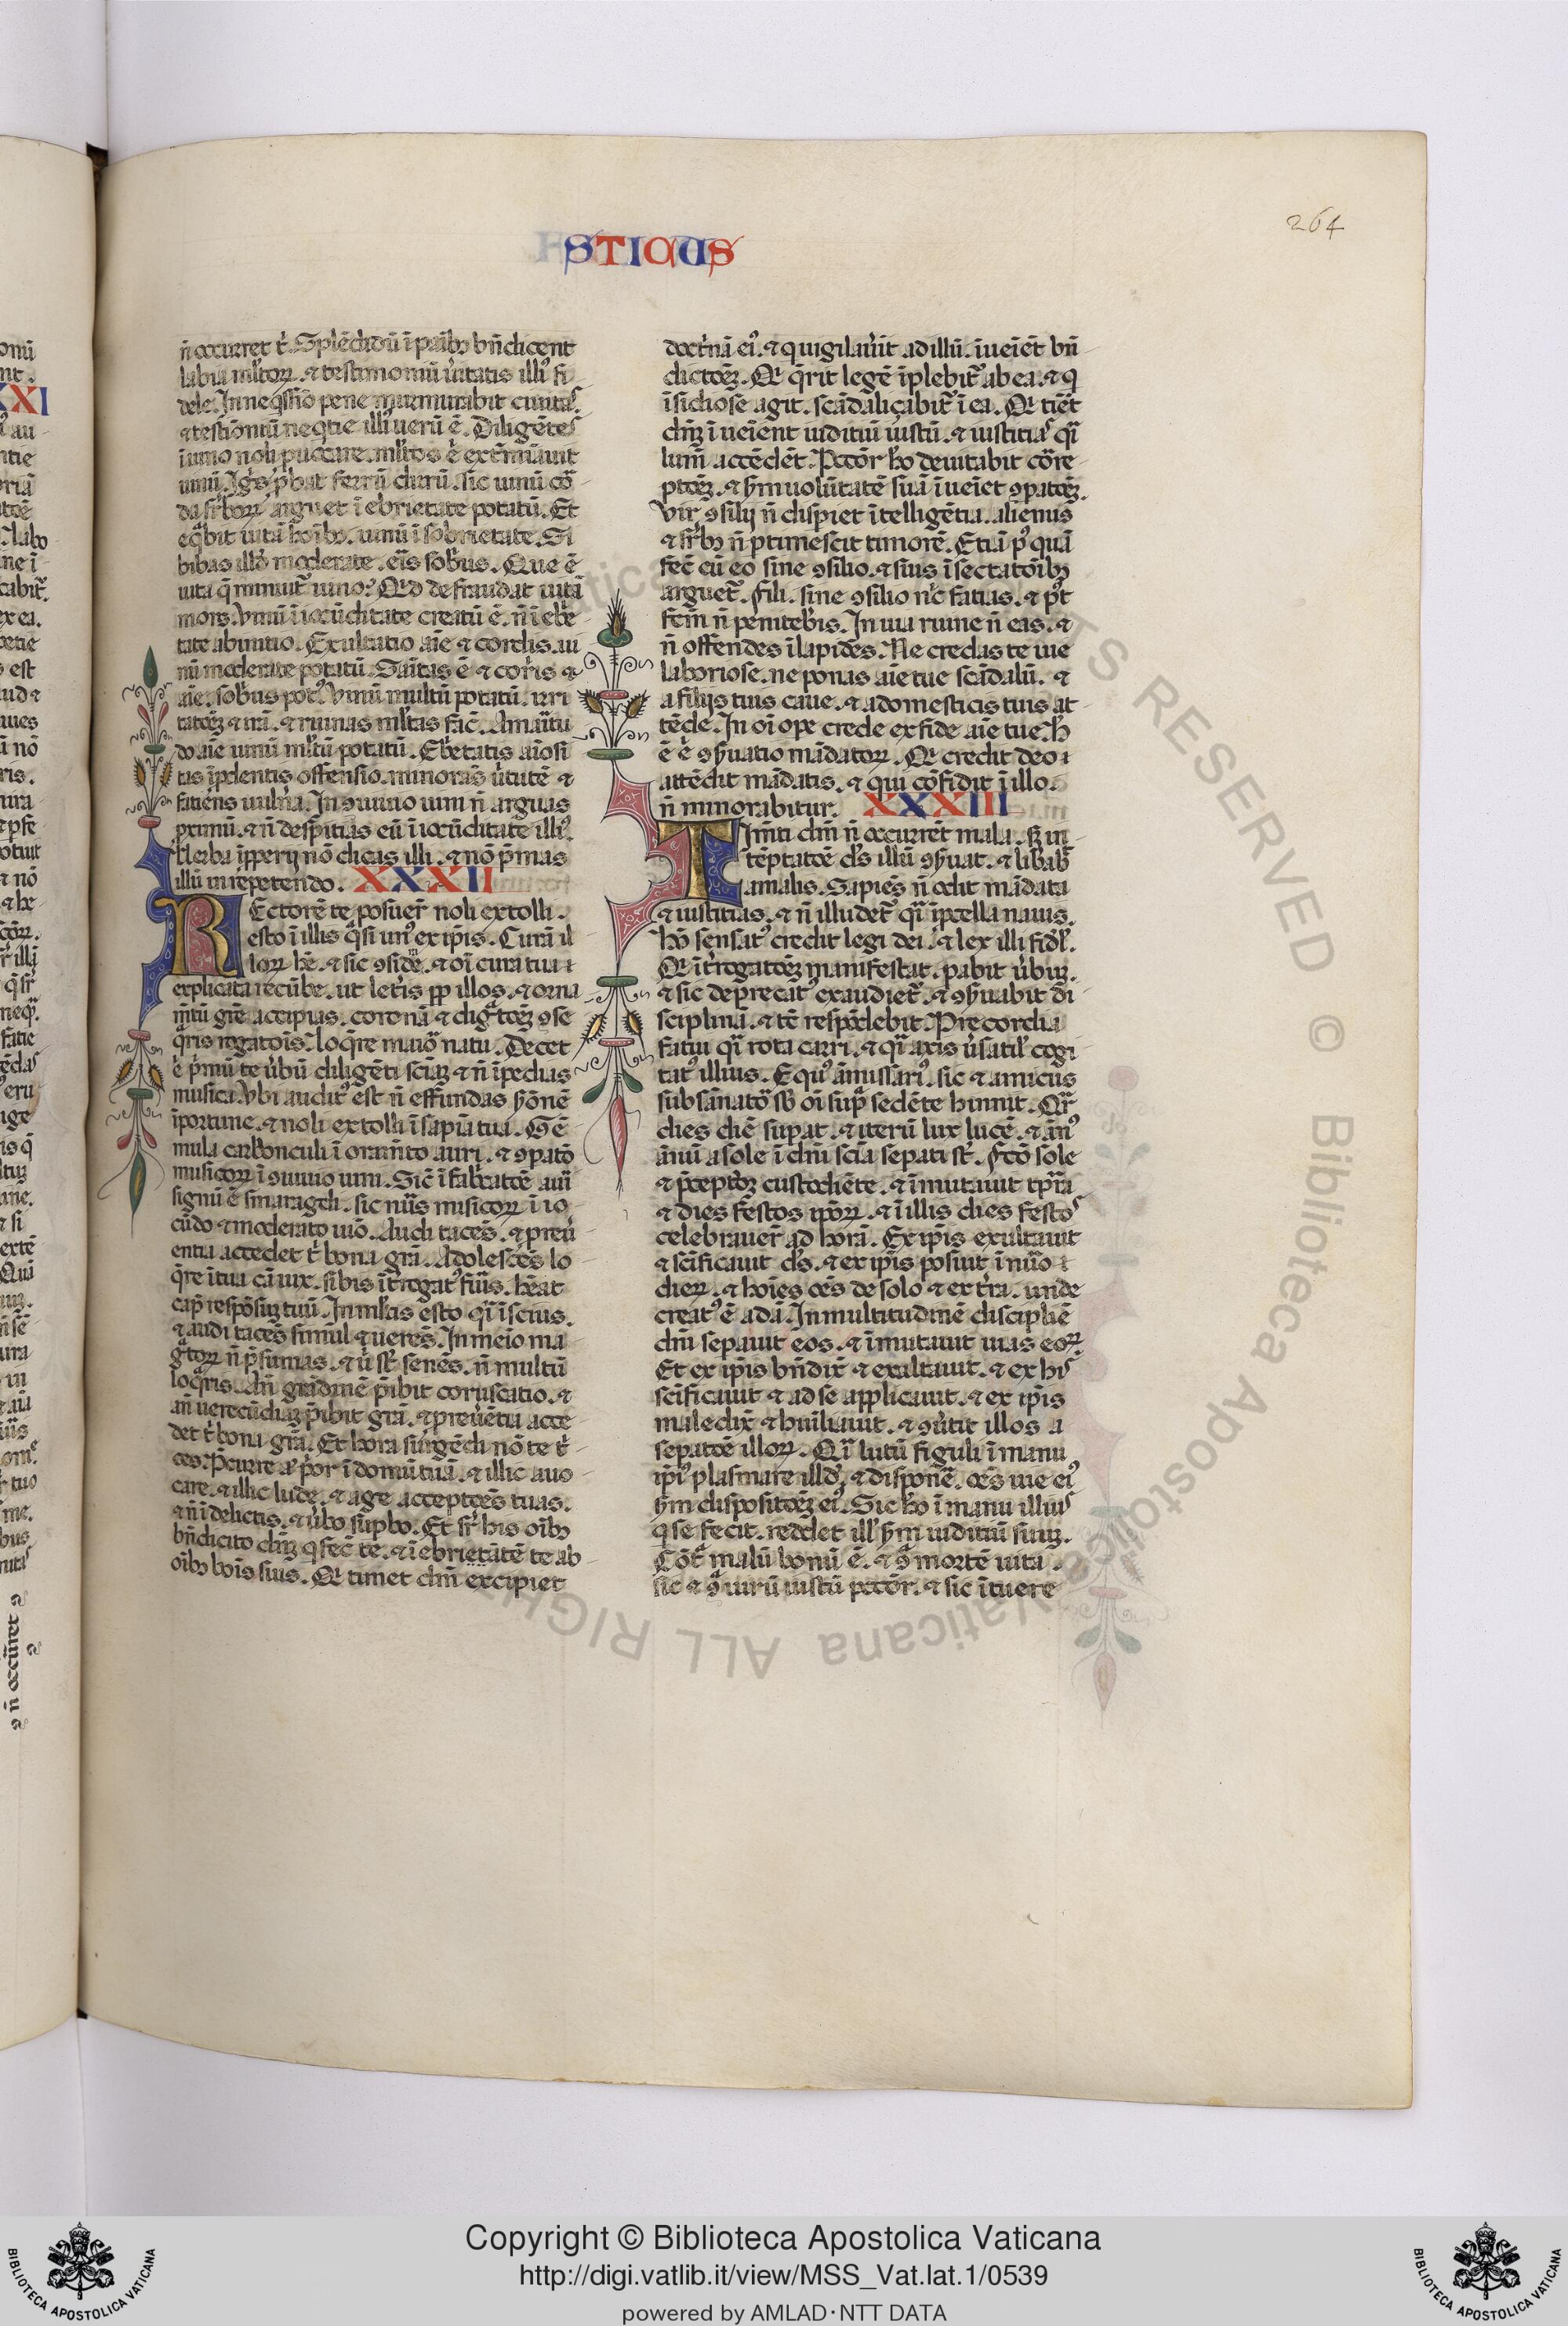 264
STICUS
n̄ occurret t̓. Splēdidū ī pāıbꝫ bn̄dicent
labia ml̓toꝝ. ⁊ testimoniū ūitatis illiꝰ fi
dele. In neq̄ssīo pane murmurabit ciuitaˢ.
⁊ testiōniū neq̄tie illiꝰ uerū ē. Diligēteˢ
ī uino noli puocare. ml̓tos ē ext̓mīauit
uinū. Igˢ ꝓbat ferrū durū. sic uinū cor
da suꝑboꝝ arguet ī ebrietate potatū. Et
eq̄bit uitā hoībꝫ. uinū ī sobrietate. Si
bibas illd̓ moderate. eīs sobrius. Que ē
uita q̄ minuit̄ uino? Qd̓ defraudat uitā
mors. Vinū ī iocūditate creatū ē. n̄ ī ebrie
tate ab initio. Exultatio aīe ⁊ cordis. ui
nū moderate potatū. Sanitas ē ⁊ corꝑis ⁊
aīe. sobrius potꝰ. Vinū multū potatū. irri
tatōꝫ ⁊ irā. ⁊ ruinas ml̓tas fac̄. Amaritu
do aīe uinū ml̓tū potatū. Ebrietatis aīosi
tas īprudentis offensio. minorans ūtutē ⁊
fatiens uulnꝰa. In ꝯuiuio uini n̄ arguas
proximū. ⁊ n̄ despitias eū ī iocūditate illiꝰ.
Verba īpperij nō dicas illi. ⁊ nō p̄mas
illū in repetendo. XXXII
Rectorē te posuer̄ noli extolli.
esto ī illis q̄si unꝰ ex ip̄is. Curā il
loꝝ hē. ⁊ sic ꝯside. ⁊ oī cura tua
explicita recūbe. ut letr̄is ꝓp illos. ⁊ orna
mtū gr̄e accipias. coronā ⁊ dignatōꝫ ꝯse
q̄ris rogatōis. Loq̄re maior natu. Decet
ē prīmū te ūbū diligēti sciaꝫ ⁊ n̄ īpedias
musicā. Vbi auditꝰ est n̄ effundas sermonē
īportune. ⁊ noli extolli ī sapīa tua. Gē
mula carbonculi ī ornamto auri. ⁊ ꝯpatō
musicoꝝ ī ꝯuiuio uini. Sic̄ ī fabricatōe auri
signū ē smaragdi. sic nūs musicoꝝ ī io
cūdo ⁊ moderato uīo. Audi tacēs. ⁊ p̄ reuer
entia accedet t̓ bona grā. Adolescēs lo
q̄re ī tua cā uix. si bis īt̓rogatꝰ fūis. hēat
cap̄ respōsūꝫ tuū. In ml̓tis esto q̄i īscius.
⁊ audi tacēs simul ⁊ querēs. In medio ma
gn̄toꝝ n̄ p̄sumas. ⁊ ubi st̄ senēs. n̄ multū
loq̄ris. An̄ grādinē p̄ibit coruscatio. ⁊
an̄ uerecūdiāꝫ p̄ibit grā. ⁊ p̄ reuētia acce
det t̓ bona grā. Et hora surgēdi nō te t̓
ces. p̄curre āt prior ī domū tuā. ⁊ illic auo
care. ⁊ illic lude. ⁊ age accepcōes tuas.
⁊ n̄ ī delictis. ⁊ ūbo supbo. Et sr̄ his oībꝫ
bn̄dicito dn̄ꝫ q̄ fec̄ te. ⁊ īebrietātē te ab
oībꝫ boīs suis. Qi timet dn̄m excipiet
doct̓nā eiꝰ. ⁊ qui uigilaūit ad illū. īueīēt bn̄
dictōꝫ. Qi q̄rit legē īplebit̄ ab ea. ⁊ q̄
īsidiose agit. scādaliçabit̄ ī ea. Qi timēt
dn̄ꝫ īueient iuditiū iustū. ⁊ iustitiaˢ q̄i
lum̄ accēdēt. Pctōr hō deuitabit cōre
ptōꝫ. ⁊ sm̄ uolūtatē suā īueīet ꝯpatōꝫ.
Vir ꝯsilij n̄ disꝑiet ītelligētia. alienus
⁊ suꝑbꝫ n̄ ꝑtimescit timorē. Etiā pꝰ quā
fec̄ cū eo sine ꝯsilio. ⁊ suis īsectatōibꝫ
arguet̄. Fili. sine ꝯsilio nic̄ fatias. ⁊ pꝰt
fc̄m n̄ penitebis. In uia ruine n̄ eas. ⁊
n̄ offendes ī lapides. Ne credas te uie
laboriose. ne ponas aīe tue scādalū. ⁊
a filijs tuis caue. ⁊ a domesticis tuis at
tēde. In oī oꝑe crede ex fide aīe tue. H̄
ē ē ꝯseruatio mādatoꝝ. Qi credit deo
attēdit mādatis. ⁊ qui cōfidit ī illo.
n̄ minorabitur. XXXIII
Timti dn̄m n̄ occurret mala. sꝫ in
tēptatōe ds̄ illū ꝯseruat. ⁊ libabit
a malis. Sapiēs n̄ odit mādata
⁊ iustitias. ⁊ n̄ illudet̄ q̄i ī ꝓcella nauis.
Hō sensatꝰ credit legi dei. ⁊ lex illi fidel̓.
Qi īt̓rogatōꝫ manifestat. ꝑabit ūbuꝫ.
⁊ sic deprecatꝰ exaudiet̄. ⁊ ꝯseruabit di
sciplinā. ⁊ tc̄ respōdebit. Precordia
fatui q̄i rota carri. ⁊ q̄i axis ūsatil̓ cogi
tatꝰ illius. Equꝰ āmissariꝰ. sic ⁊ amicus
subsānator sb̄ oī supra sedēte hinnit. Qr̄
dies diē supat. ⁊ iterū lux lucē. ⁊ ānꝰ
ānū a sole ī dn̄i scīa sepati st̄. Fcō sole
⁊ p̄ceptōꝫ custodiēte. ⁊ īmutauit tꝑra
⁊ dies festos ipoꝝ. ⁊ ī illis dies festoˢ
celebrauer̄ ad horā. Ex ip̄is exaltauit
⁊ sc̄ificauit ds̄. ⁊ ex ip̄is posuit ī nūo
dieꝝ. ⁊ hoīes oēs de solo ⁊ ex t̓ra. unde
creatꝰ ē adā. In multitudinē discipliē
dn̄i sepauit eos. ⁊ īmutauit uias eoꝝ.
Et ex ip̄is bn̄dix̄ ⁊ exaltauit. ⁊ ex hiˢ
sc̄ificauit ⁊ ad se applicauit. ⁊ ex ip̄is
maledix̄ ⁊ hūiliauit. ⁊ ꝯūtit illos a
sepatōe illoꝝ. Q̄i lutū figuli ī manu
ip̄iꝰ plasmare illd̓ꝫ ⁊ disponē. oēs uie eiꝰ
sm̄ dispositōꝫ eiꝰ. Sic hō ī manu illiuˢ
q̄ se fecit. reddet ill̓ sm̄ iuditiū suuꝫ.
Cōt̄ malū bonū ē. ⁊ ꝯ̄ mortē uita.
sic ⁊ ꝯ̄ uirū iustū pctōr. ⁊ sic ītuere
Copyright © Biblioteca Apostolica Vaticana
http://digi.vatlib.it/view/MSS_Vat.lat.1/0539
powered by AMLAD·NTT DATA
BIBLIOTECA APOSTOLICA VATICANA
BIBLIOTECA APOSTOLICA VATICANA